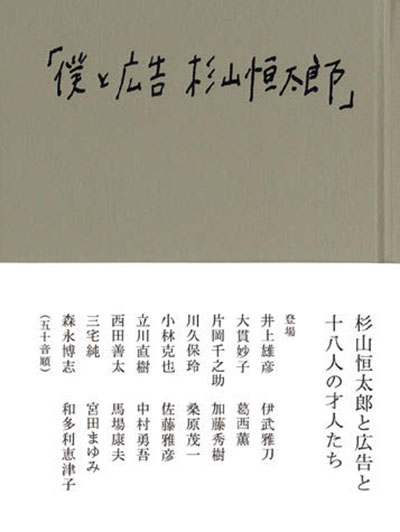 「僕と広告 杉山恒太郎」
杉山恒太郎と広告と
十八人の才人たち
登場
井上雄彦 伊武雅刀
大貫妙子 葛西薫
片岡千之助 加藤秀樹
川久保玲 桑原茂一
小林克也 佐藤雅彦
立川直樹 中村勇吾
西田善太 馬場康夫
三宅純 宮田まゆみ
森永博志 和多利恵津子
（五十音順）